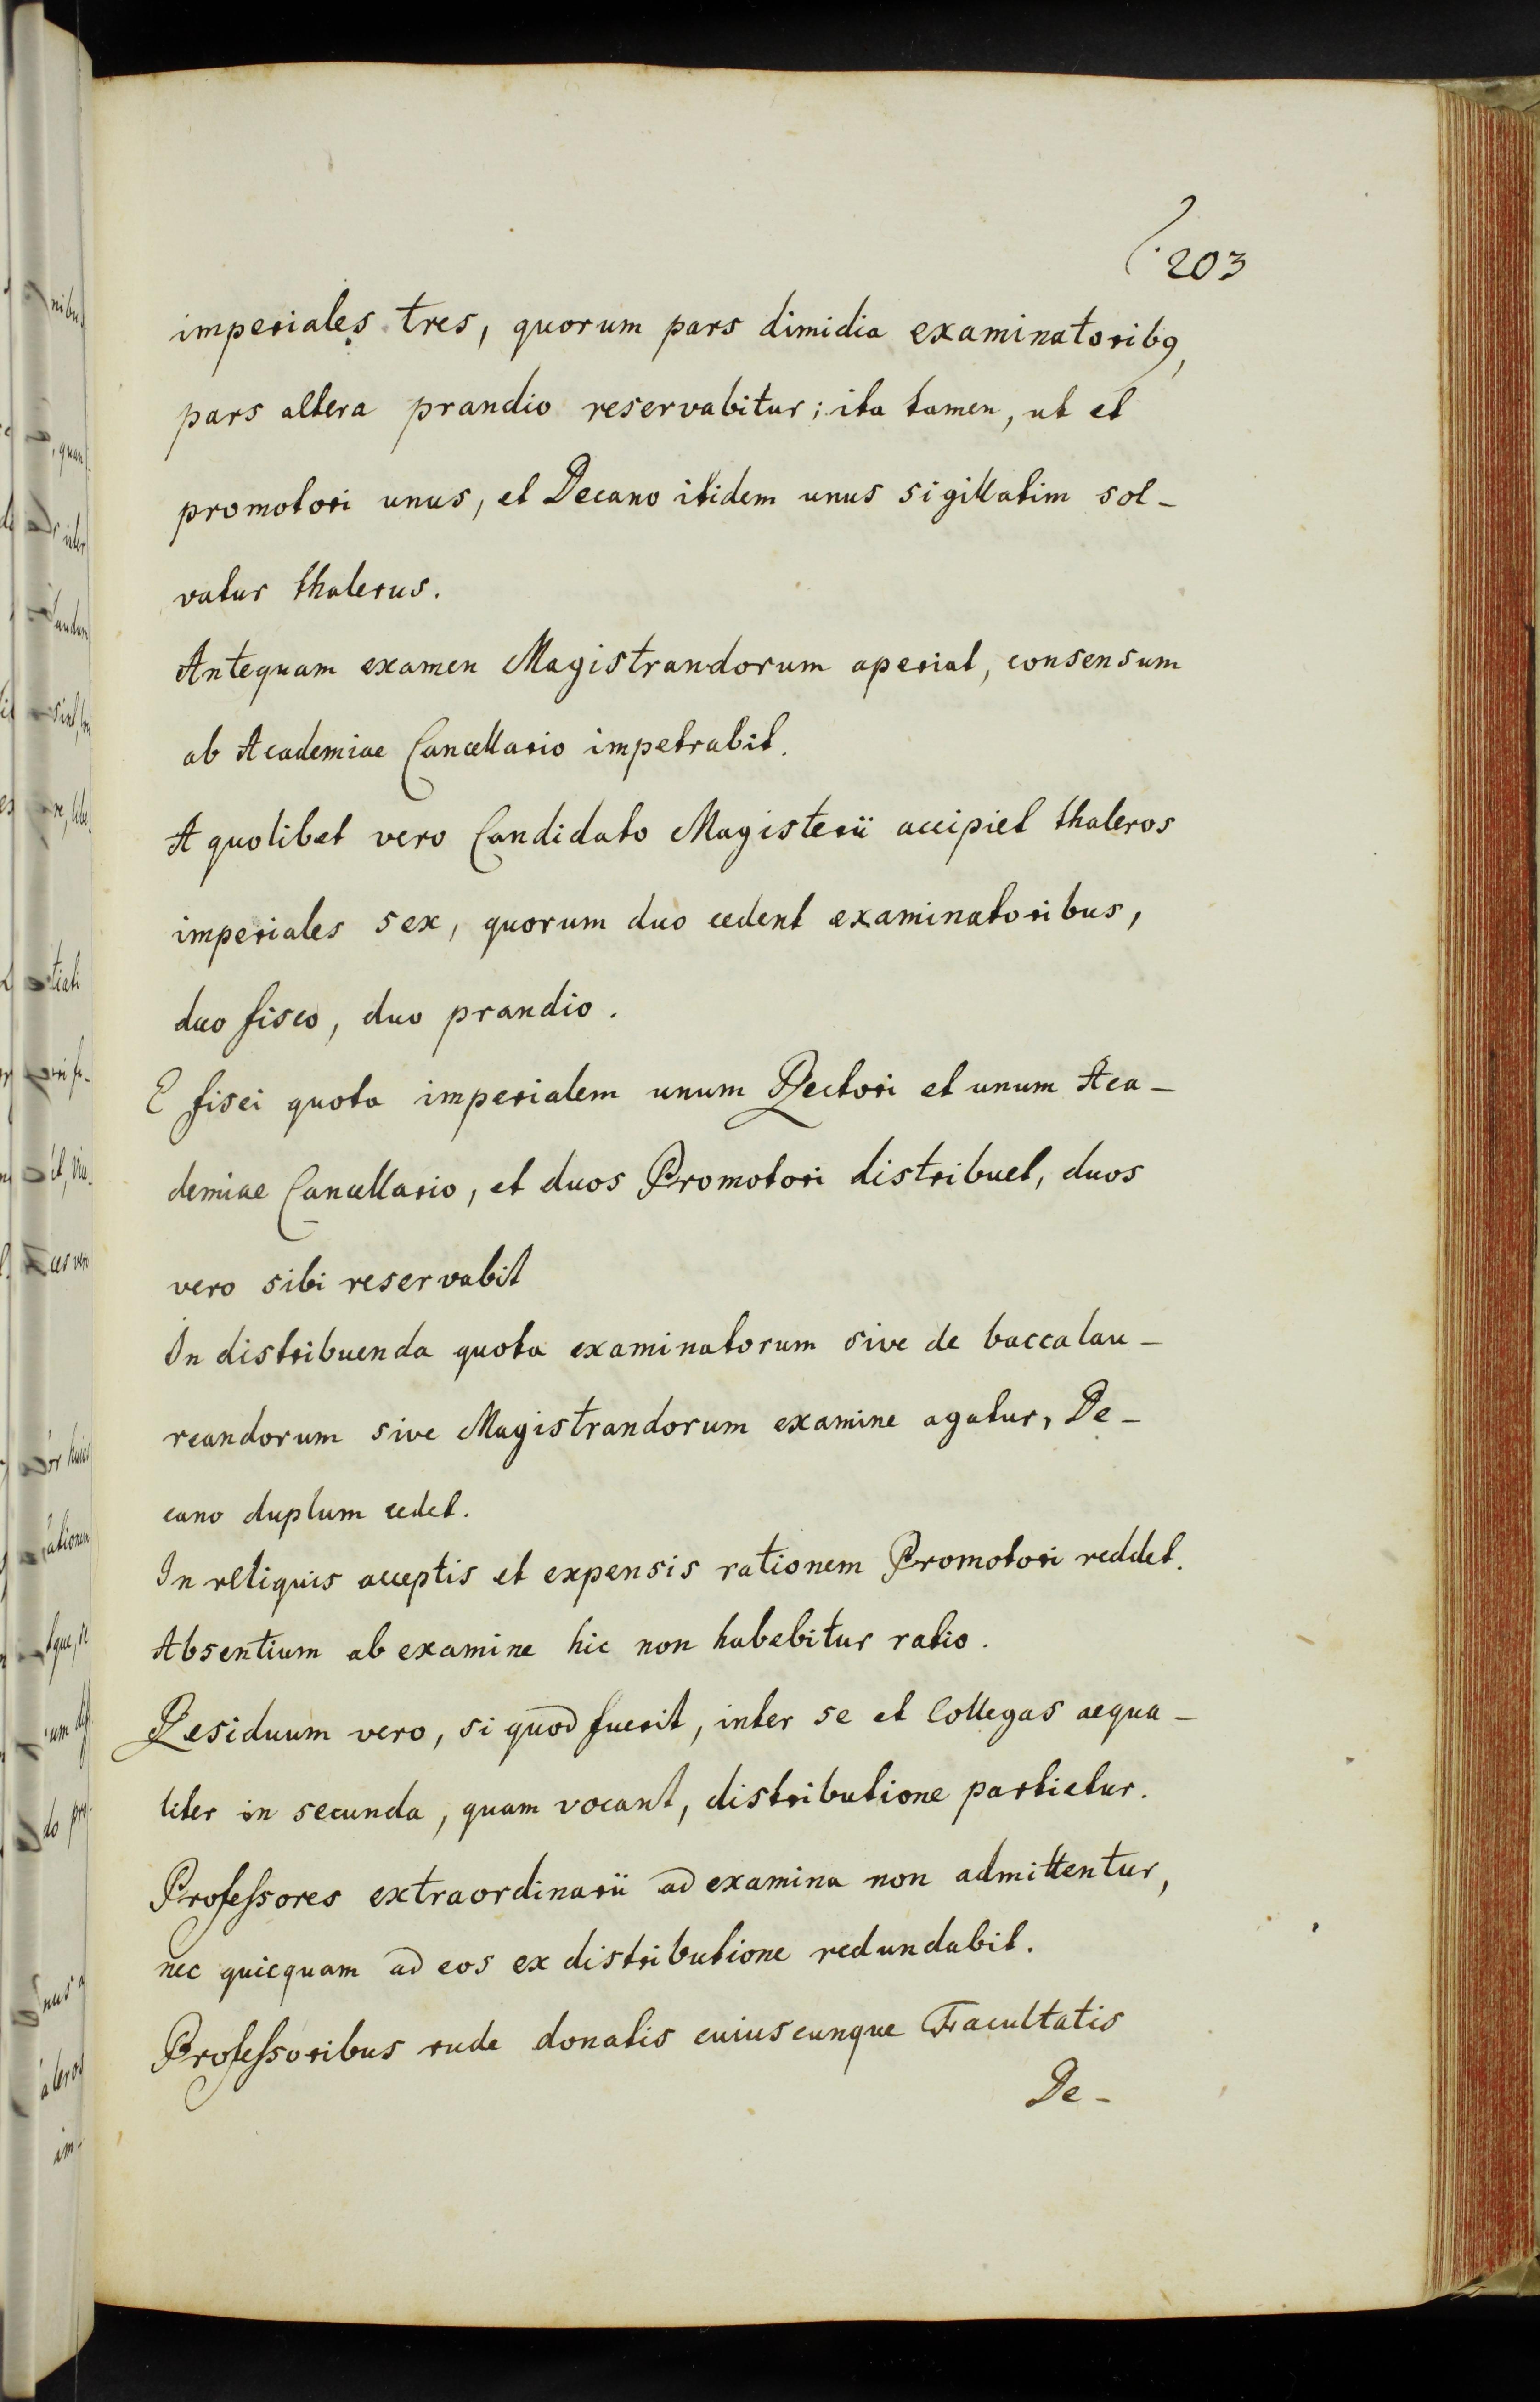 203
imperiales tres, quorum pars dimidia examinatoribꝰ,
pars altera prandio reservabitur; ita tamen, ut et
promotori unus, et Decano itidem unus sigillatim sol-
vatur thalerus.
Antequam examen Magistrandorum aperiat, consensum
ab Academiae Cancellario impetrabit.
A quolibet vero Candidato Magisterii accipiet thaleros
imperiales sex, quorum duo cedent examinatoribus,
duo fisco, duo prandio.
E fisci quota imperialem unum Rectori et unum Aca-
demiae Cancellario, et duos Promotori distribuet, duos
vero sibi reservabit
In distribuenda quota examinatorum sive de baccalau-
reandorum sive Magistrandorum examine agatur, De-
cano duplum cedet.
In reliquis acceptis et expensis rationem Promotori reddet.
Absentium ab examine hic non habebitur ratio.
Residuum vero, si quod fuerit, inter se et Collegas aequa-
liter in secunda, quam vocant, distributione partietur.
Professores extraordinarii ad examina non admittentur,
nec quicquam ad eos ex distributione redundabit.
Professoribus rude donatis cuiuscunque Facultatis
De-